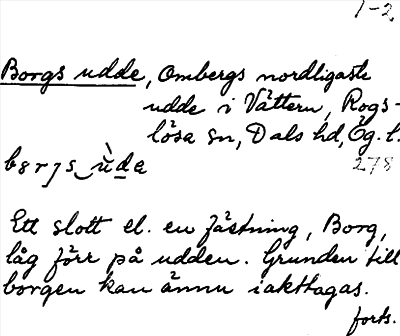 1-2
Borgs udde, Ombergs nordligaste
udde i Vättern, Rogs-
lösa sn, Dals hd, Ög. l.
278
Ett slott el. en fästning, Borg,
låg förr på udden. Grunden till
borgen kan ännu iakttagas.
forts.